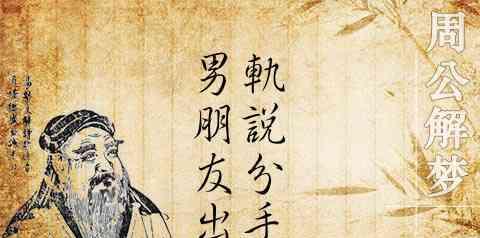 周公解梦
男朋友出
軌說分手